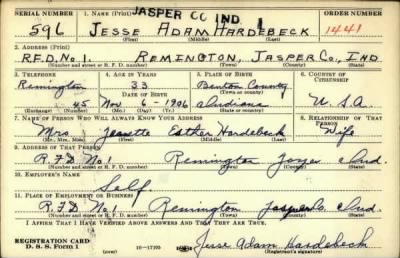 SERIAL NUMBER 1. NAME (Print) JASPER CO IND. ORDER NUMBER
596 JESSE ADAM HARDEBECK 1441
(First) (Middle) (Last)
2. ADDRESS (Print)
R.F.D. No. 1. REMINGTON, JASPER Co., IND.
(Number and street or R. F. D. number) (Town) (County) (State)
3. TELEPHONE 4. AGE IN YEARS 5. PLACE OF BIRTH 6. COUNTRY OF CITIZENSHIP
Remington 33 Benton County
DATE OF BIRTH (Town or county)
45 Nov 6 - 1906 Indiana U.S.A.
(Exchange) (Number) (Mo.) (Day) (Yr.) (State or country)
7. NAME OF PERSON WHO WILL ALWAYS KNOW YOUR ADDRESS 8. RELATIONSHIP OF THAT PERSON
Mrs. Jeanette Esther Hardebeck Wife
(Mr., Mrs., Miss) (First) (Middle) (Last)
9. ADDRESS OF THAT PERSON
R.F.D. No. 1 Remington Ind.
(Number and street or R. F. D. number) (Town) (County) (State)
10. EMPLOYER'S NAME
Self
11. PLACE OF EMPLOYMENT OR BUSINESS
R.F.D. No. 1 Remington Jasper Co. Ind.
(Number and street or R. F. D. number) (Town) (County) (State)
I AFFIRM THAT I HAVE VERIFIED ABOVE ANSWERS AND THAT THEY ARE TRUE.
REGISTRATION CARD
D. S. S. Form 1 16-17105 Jesse Adam Hardebeck
(Registrant's signature)